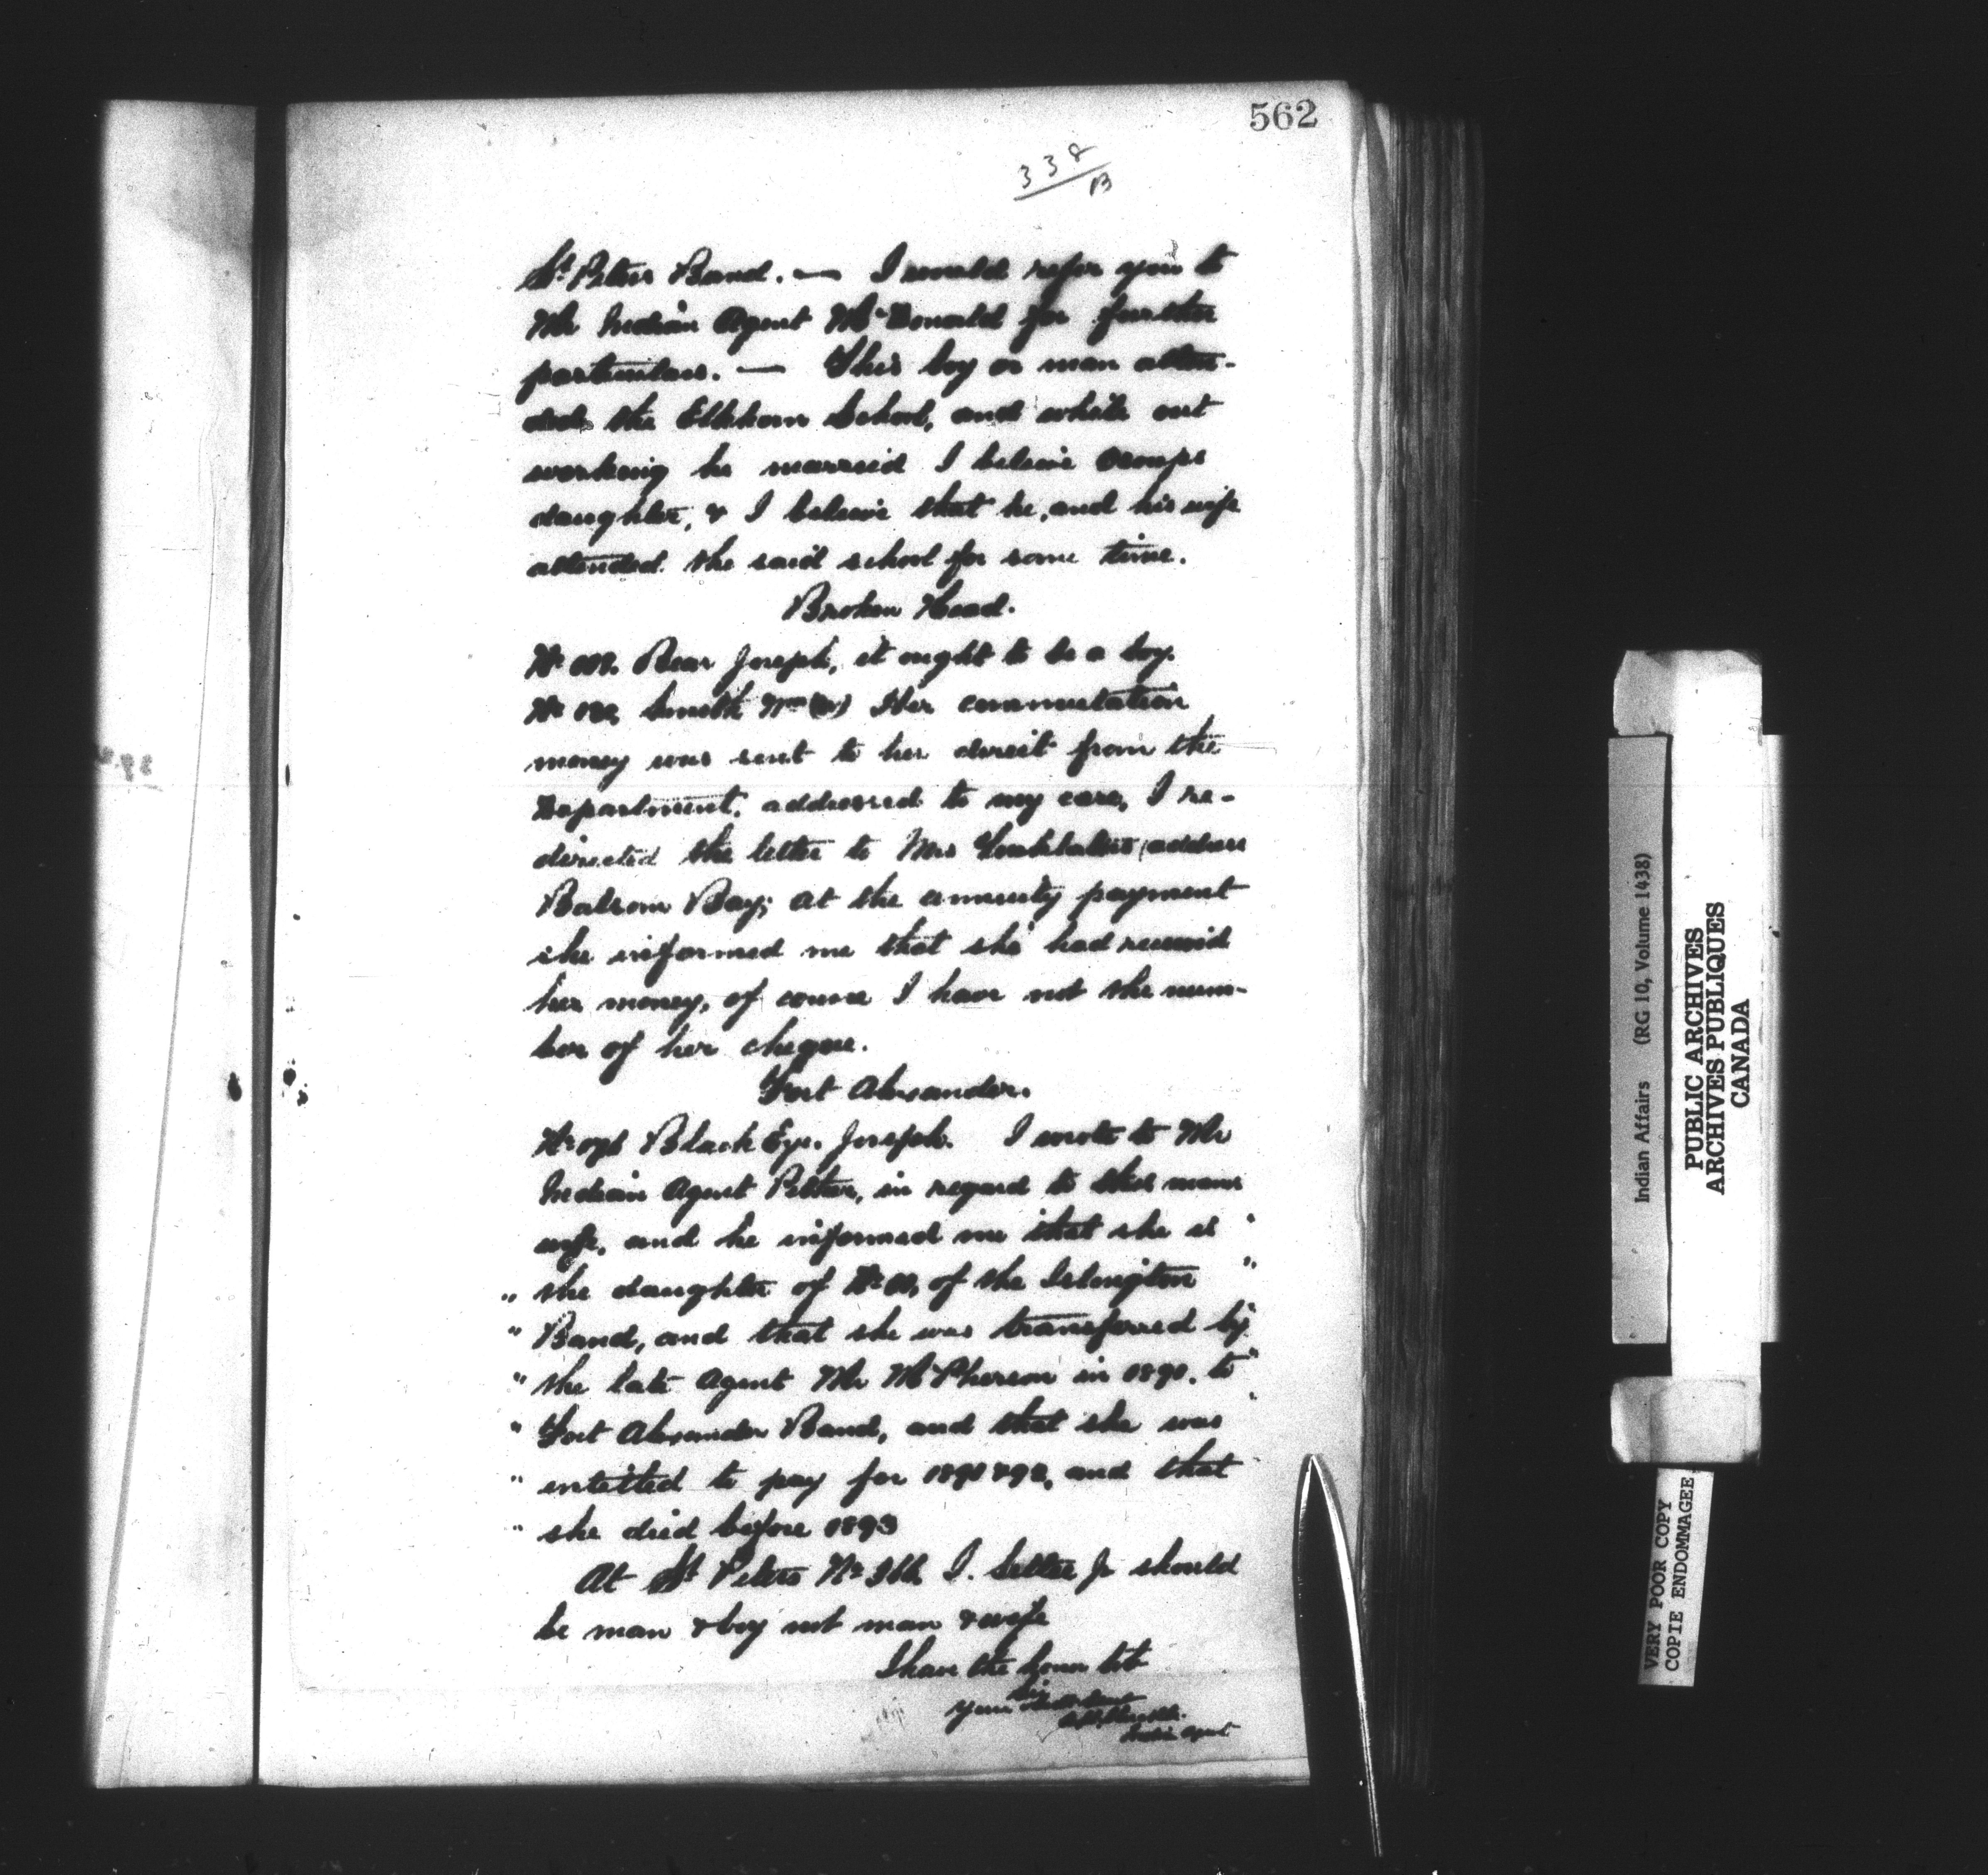 562
338/B
St Peters Band. — I would refer you to
Mr Indian Agent McDonald for further
particulars. — This boy or man atten-
ded the Elkhorn School, and while out
working he married I beleive
daughter, & I beleive that he, and his wife
attended the said school for some time.
Broken Head.
No Bear Joseph, it ought to be a boy.
No Smith Wm Her commutation
money was sent to her direct from the
Department, addressed to my care, I re-
directed the letter to Mrs address
Balsom Bay; at the annuity payment
she informed me that she had received
her money, of course I have not the num-
ber of her cheque.
Fort Alexander.
No Black Eye. Joseph. I wrote to Mr
Indian Agent in regard to this mans
wife, and he informed me that she is "
" the daughter of No of the Islington "
" Band, and that she was transferred by
" the late Agent Mr McPherson in 1890. to "
" Fort Alexander Band, and that she was "
" entetled to pay for and that
" she died before 1893
At St Peters No I. Settee Jr should
be man & boy not man & wife
I have the honor to be
Sir
Your
Indian Agent
Indian Affairs (RG 10, Volume 1438)
PUBLIC ARCHIVES
ARCHIVES PUBLIQUES
CANADA
VERY POOR COPY
COPIE ENDOMMAGEE